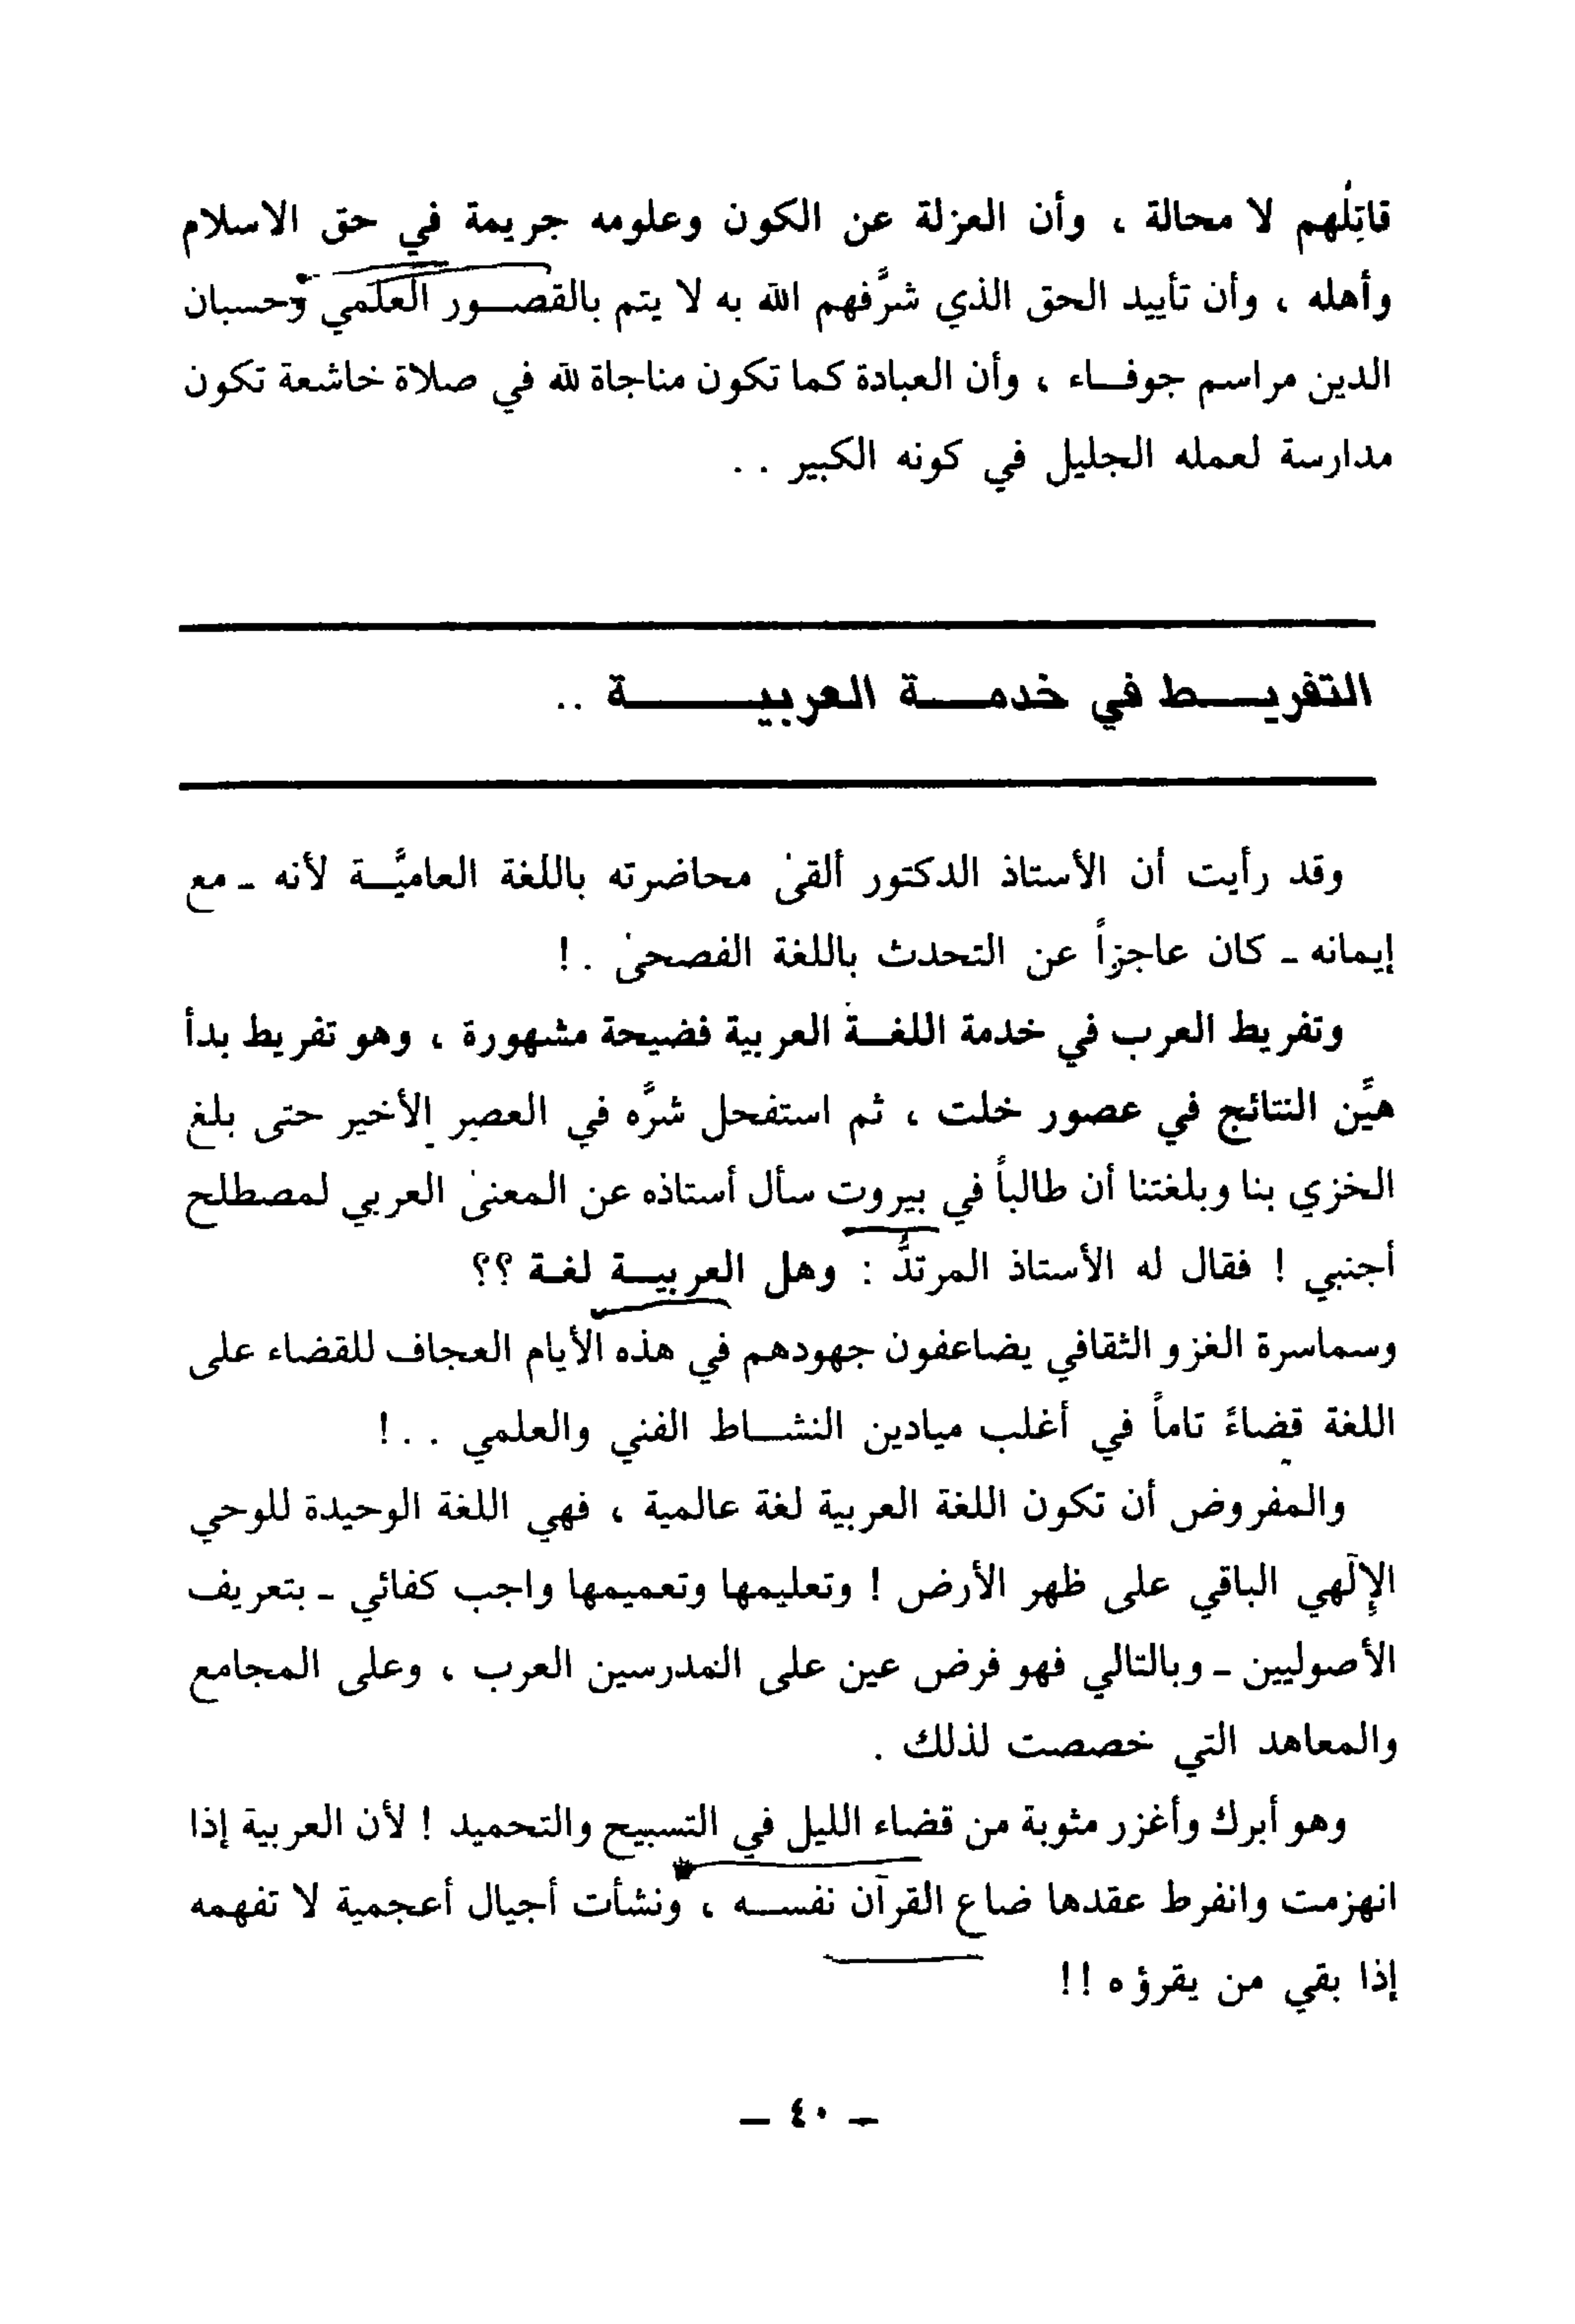 قاتِلُهم لا محالة ، وأن العزلة عن الكون وعلومه جريمة في حق الاسلام
وأهله ، وأن تأييد الحق الذي شرَّفهم الله به لا يتم بالقصــور العلمي وحسبان
الدين مراسم جوفــاء ، وأن العبادة كما تكون مناجاة لله في صلاة خاشعة تكون
مدارسة لعمله الجليل في كونه الكبير . .
التفريــط في خدمــة العربيــــة ..
وقد رأيت أن الأستاذ الدكتور ألقىٰ محاضرته باللغة العاميَّــة لأنه ـ مع
إيمانه ـ كان عاجزاً عن التحدث باللغة الفصحىٰ . !
وتفريط العرب في خدمة اللغــة العربية فضيحة مشهورة ، وهو تفريط بدأ
هيِّن النتائج في عصور خلت ، ثم استفحل شرَّه في العصر الأخير حتى بلغ
الخزي بنا وبلغتنا أن طالباً في بيروت سأل أستاذه عن المعنىٰ العربي لمصطلح
أجنبي ! فقال له الأستاذ المرتدُّ : وهل العربيــة لغـة ؟؟
وسماسرة الغزو الثقافي يضاعفون جهودهم في هذه الأيام العجاف للقضاء على
اللغة قضاءً تاماً في أغلب ميادين النشــاط الفني والعلمي . . !
والمفروض أن تكون اللغة العربية لغة عالمية ، فهي اللغة الوحيدة للوحي
الإلٓهي الباقي على ظهر الأرض ! وتعليمها وتعميمها واجب كفائي ـ بتعريف
الأصوليين ـ وبالتالي فهو فرض عين على المدرسين العرب ، وعلى المجامع
والمعاهد التي خصصت لذلك .
وهو أبرك وأغزر مثوبة من قضاء الليل في التسبيح والتحميد ! لأن العربية إذا
انهزمت وانفرط عقدها ضاع القرآن نفســه ، ونشأت أجيال أعجمية لا تفهمه
إذا بقي من يقرؤه !!
– ٤٠ –